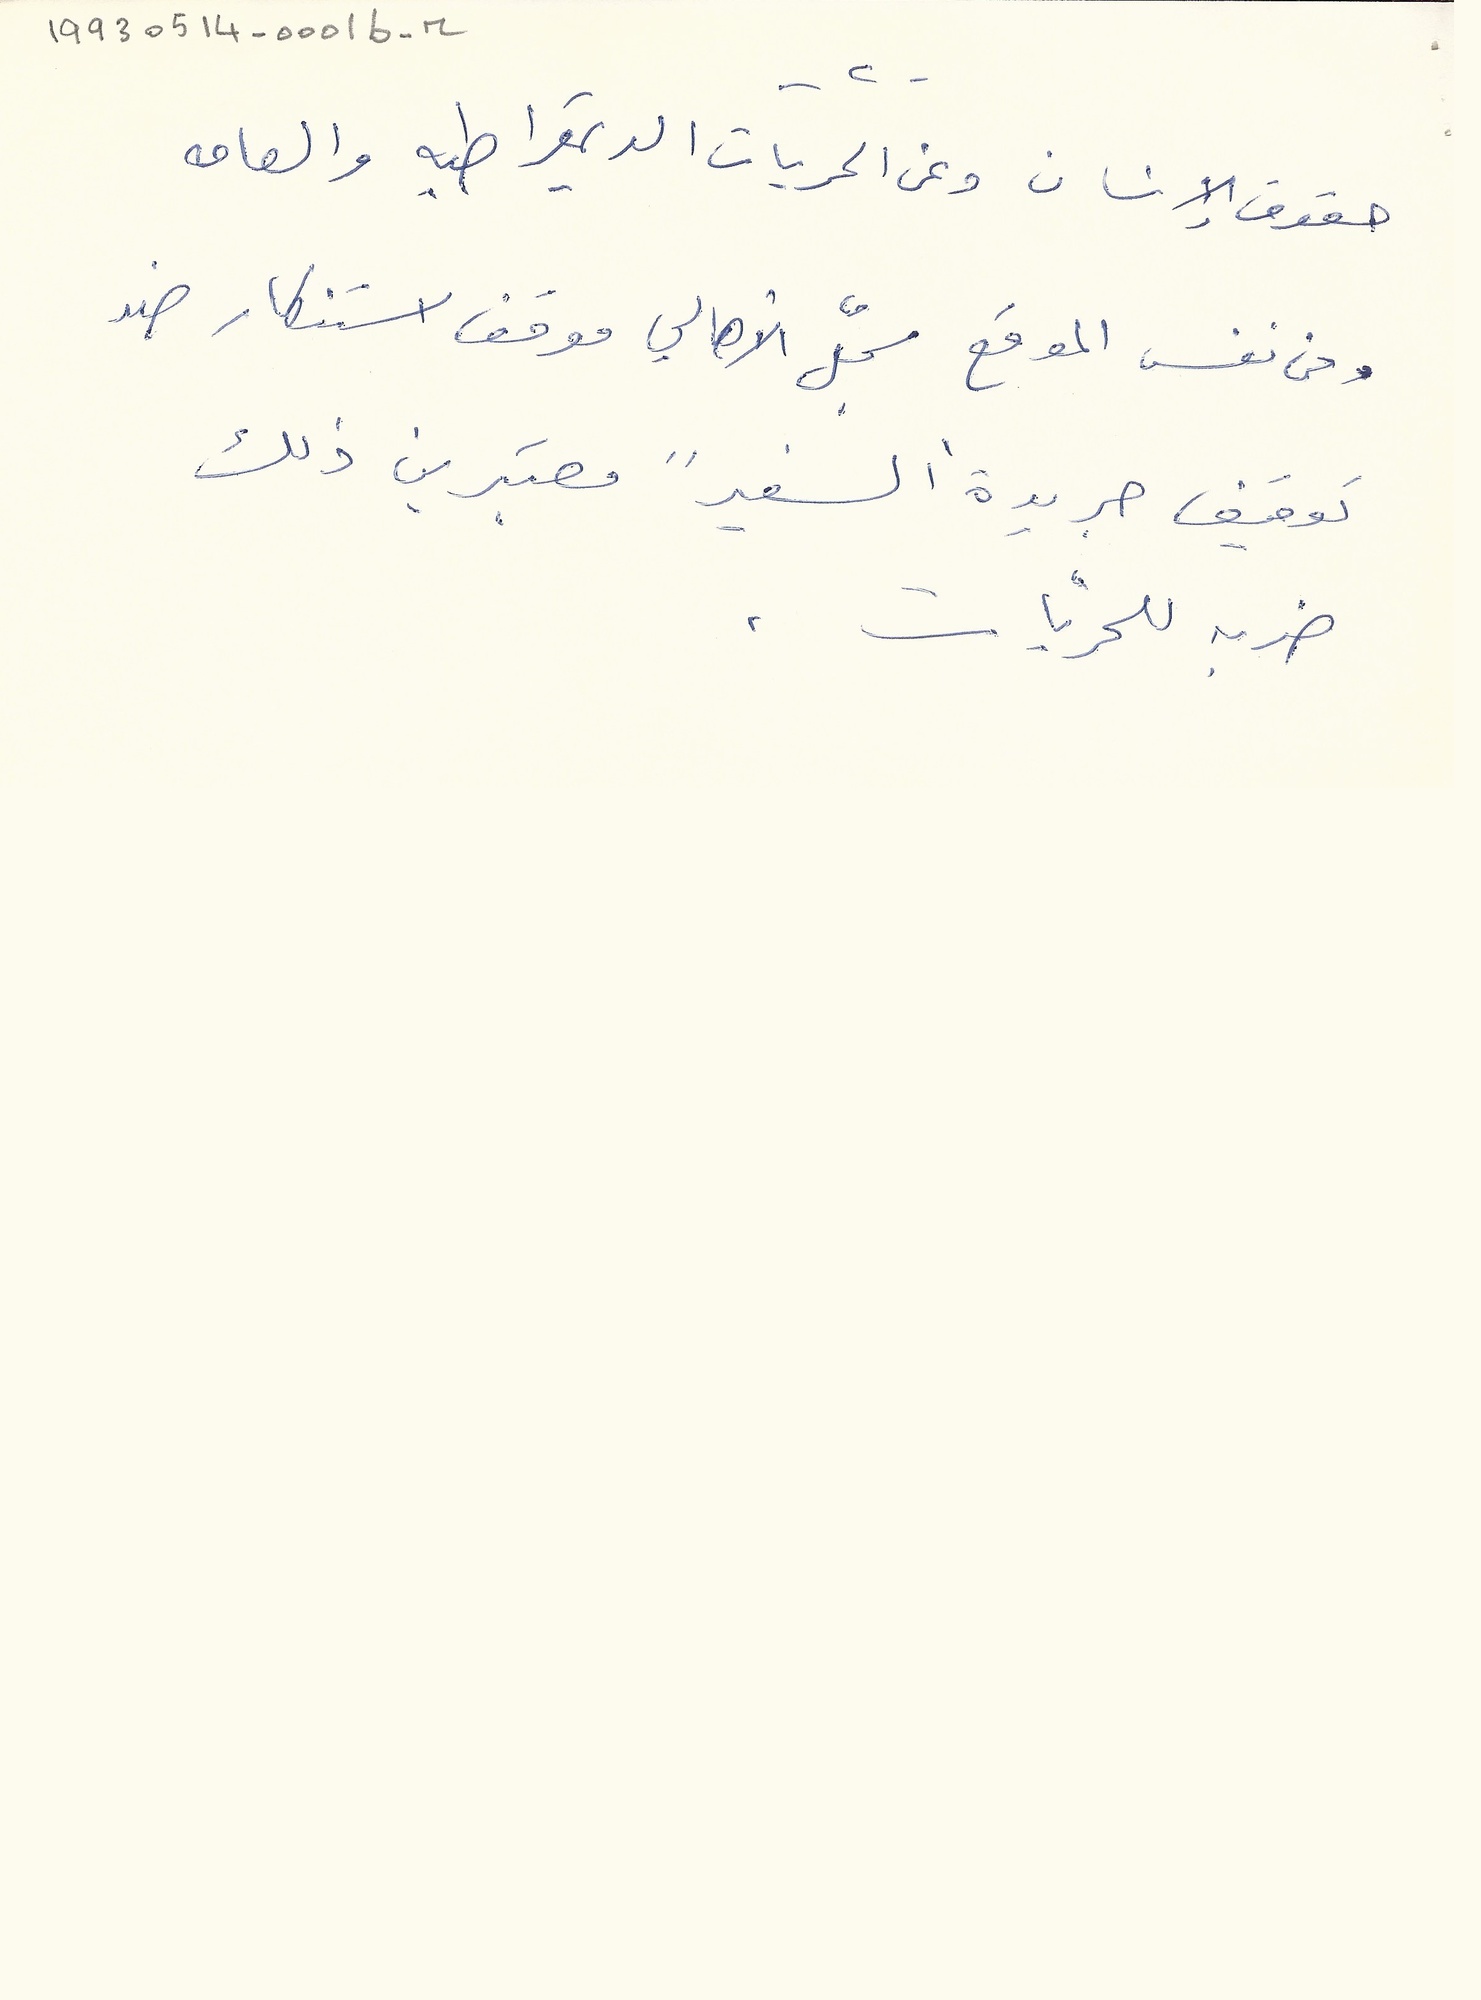 19930514-00016-م
- ٢ -
حقوق الإنسان وعن الحريات الديمقراطيه والعامه
ومن نفس الموقع سجّل الأهالي موقف استنكار ضد
توقيف جريدة "السفير" معتبرين ذلك
ضربه للحرّيات .